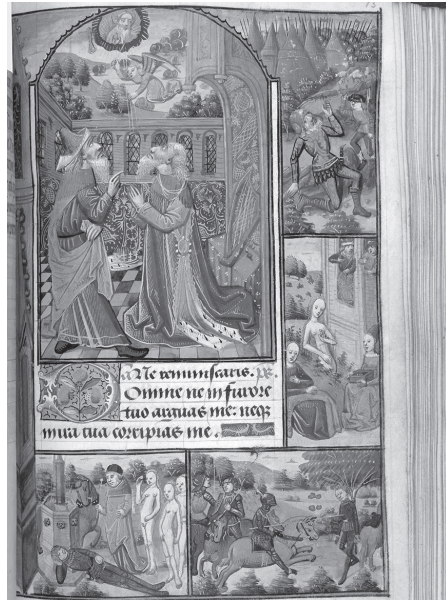 13
añ Ne reminiscaris. ps.
Domine ne in furore
tuo arguas me: neq
in ira tua corripias me.